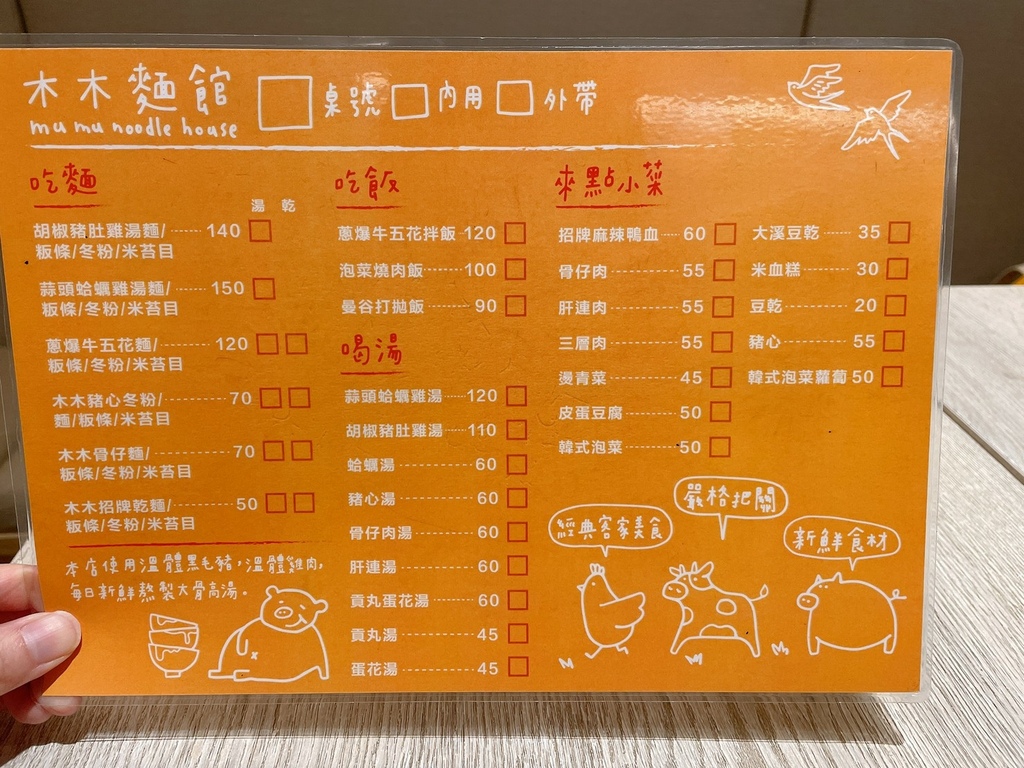 木木麵館 桌號 內用 外帶
mu mu noodle house
吃麵
湯 乾
胡椒豬肚雞湯麵/ 140
粄條/冬粉/米苔目
蒜頭蛤蠣雞湯麵/ 150
粄條/冬粉/米苔目
蔥爆牛五花麵/ 120
粄條/冬粉/米苔目
木木豬心冬粉/ 70
麵/粄條/米苔目
木木骨仔麵/ 70
粄條/冬粉/米苔目
木木招牌乾麵/ 50
粄條/冬粉/米苔目
本店使用溫體黑毛豬,溫體雞肉,
每日新鮮熬製大骨高湯。
吃飯
蔥爆牛五花拌飯 120
泡菜燒肉飯 100
曼谷打拋飯 90
喝湯
蒜頭蛤蠣雞湯 120
胡椒豬肚雞湯 110
蛤蠣湯 60
豬心湯 60
骨仔肉湯 60
肝連湯 60
貢丸蛋花湯 60
貢丸湯 45
蛋花湯 45
來點小菜
招牌麻辣鴨血 60
骨仔肉 55
肝連肉 55
三層肉 55
燙青菜 45
皮蛋豆腐 50
韓式泡菜 50
大溪豆乾 35
米血糕 30
豆乾 20
豬心 55
韓式泡菜蘿蔔 50
經典客家美食
嚴格把關
新鮮食材